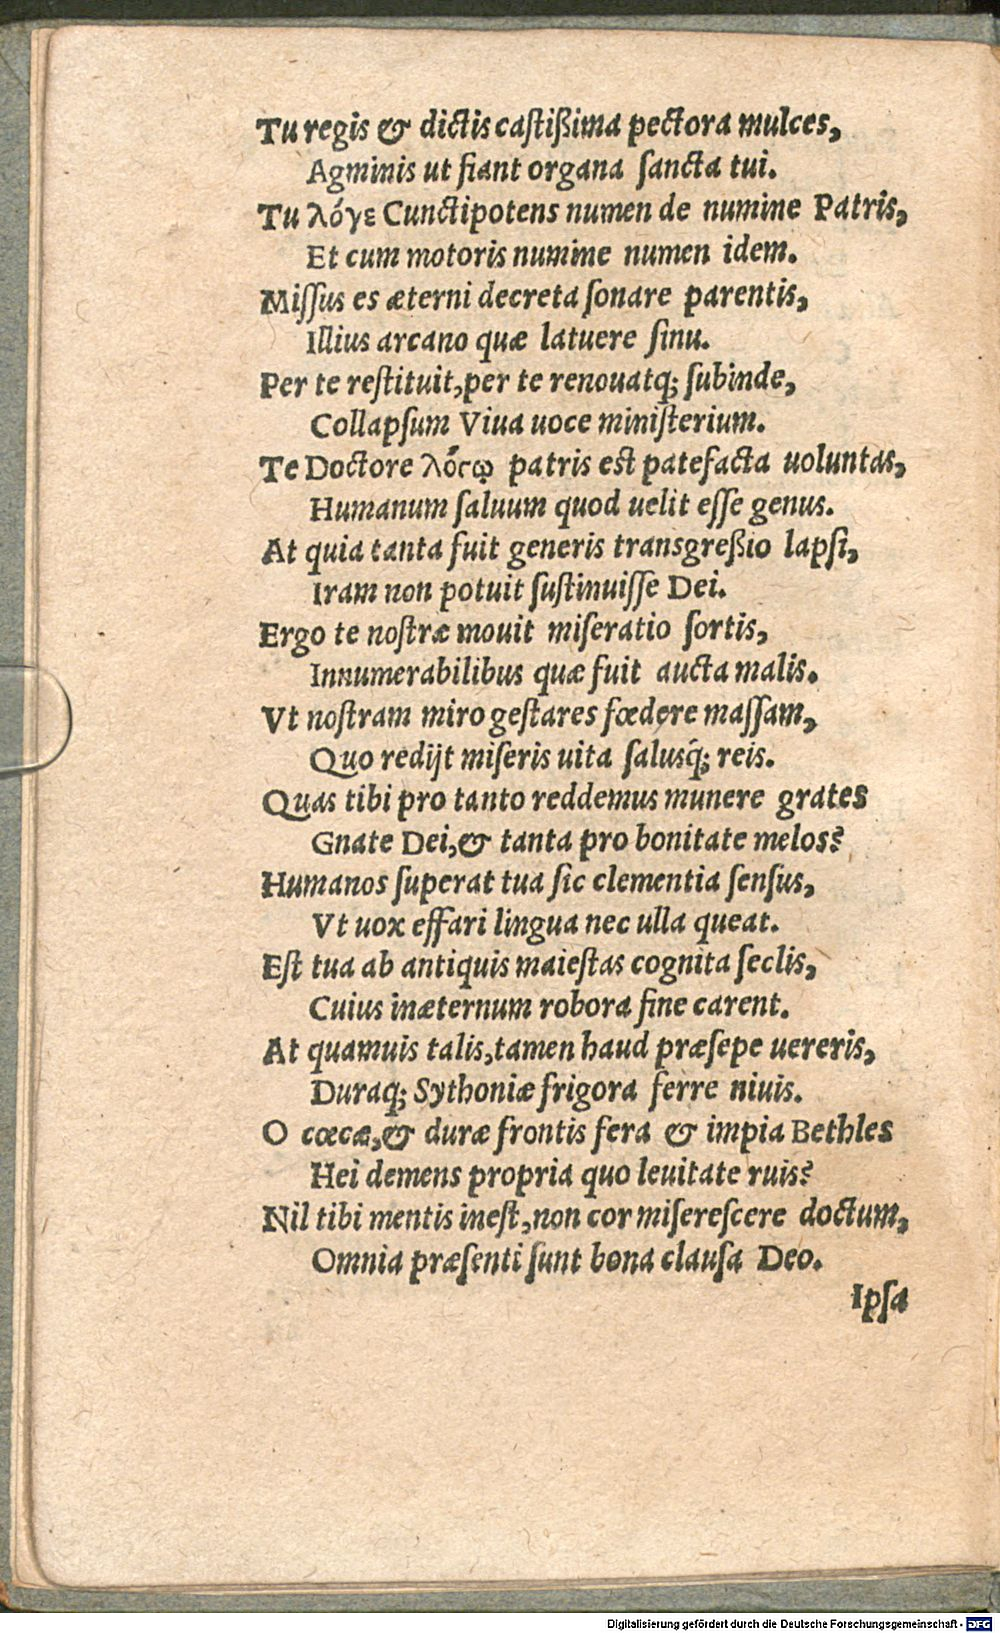 Tu regis & dictis castißima pectora mulces,
Agminis ut fiant organa sancta tui.
Tu λόγε Cunctipotens numen de numine Patris,
Et cum motoris numine numen idem.
Missus es æterni decreta sonare parentis,
Illius arcano quæ latuere sinu.
Per te restituit, per te renouatq; subinde,
Collapsum Viua uoce ministerium.
Te Doctore λόγῳ patris est patefacta uoluntas,
Humanum saluum quod uelit esse genus.
At quia tanta fuit generis transgreßio lapsi,
Iram non potuit sustinuisse Dei.
Ergo te nostræ mouit miseratio sortis,
Innumerabilibus quæ fuit aucta malis.
Vt nostram miro gestares fœdere massam,
Quo redijt miseris uita salusq́; reis.
Quas tibi pro tanto reddemus munere grates
Gnate Dei, & tanta pro bonitate melos?
Humanos superat tua sic clementia sensus,
Vt uox effari lingua nec ulla queat.
Est tua ab antiquis maiestas cognita seclis,
Cuius inæternum robora fine carent.
At quamuis talis, tamen haud præsepe uereris,
Duraq; Sythoniæ frigora ferre niuis.
O cœcæ, & duræ frontis fera & impia Bethles
Hei demens propria quo leuitate ruis?
Nil tibi mentis inest, non cor miserescere doctum,
Omnia præsenti sunt bona clausa Deo.
Ipsa
Digitalisierung gefördert durch die Deutsche Forschungsgemeinschaft - DFG